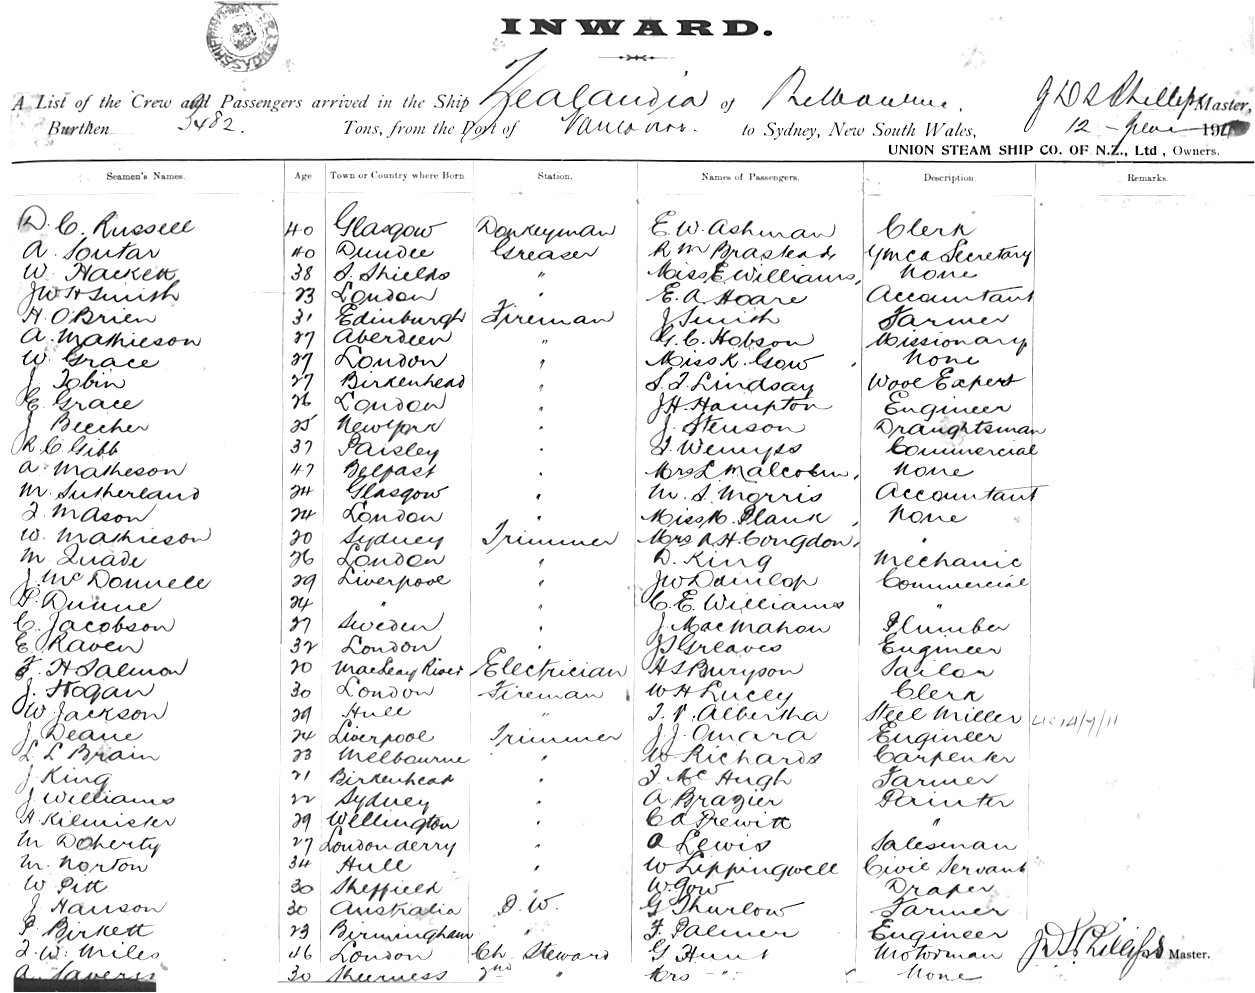 INWARD.
A List of the Crew and Passengers arrived in the Ship Zealandia of Melbourne. J D S Phillips Master,
Burthen 3482. Tons, from the Port of Vancouver. to Sydney, New South Wales, 12 June 191
UNION STEAM SHIP CO. OF N.Z., Ltd, Owners.
Seamen's Names. Age Town or Country where Born Station. Names of Passengers. Description Remarks.
D. C. Russell 40 Glasgow Donkeyman E. W. Ashman Clerk
A. Soutar 40 Dundee Greaser R M Brastead Ymca Secretary
W. Hackett 38 S. Shields " Miss E Williams, None
J W H Smith 23 London " E. A. Hoare Accountant
H O'Brien 31 Edinburgh Fireman J Smith Farmer
A. Mathieson 27 Aberdeen " G. C. Hobson Missionary
W. Grace 27 London " Miss K. Gow None
J Tobin 27 Birkenhead " S. T. Lindsay Wool Expert
E. Grace 26 London " J H. Hampton Engineer
J Beecher 25 New York " J. Stenson Draughtsman
R. C Gibb 37 Paisley " T Wemyss Commercial
A. Matheson 47 Belfast " Mrs L Malcolm, None
M. Sutherland 24 Glasgow " M. S. Morris Accountant
T. Mason 24 London " Miss M. Plank, None
W. Mathieson 20 Sydney Trimmer Mrs R H Congdon, "
M Quade 26 London " D. King Mechanic
J. McDonnell 29 Liverpool " J W Dunlop Commercial
P. Dunne 24 " " C. E. Williams "
C. Jacobson 27 Sweden " J. MacMahon Plumber
E. Raven 32 London " J T Greaves Engineer
F. H Salmon 20 Macleay River Electrician H S Buryson Tailor
J. Hogan 30 London Fireman W H Lucey Clerk
W Jackson 29 Hull " T. P. Albertha Steel Miller 14/7/11
J Deane 24 Liverpool Trimmer J. J. Omara Engineer
L L Brain 23 Melbourne " W Richards Carpenter
J King 21 Birkenhead " T. McHugh Farmer
J Williams 22 Sydney " A Brazier Painter
H Kilmister 29 Wellington " C A Prewitt "
M Doherty 27 Londonderry " A Lewis Salesman
M. Norton 34 Hull " W Lippingwell Civil Servant
W Pitt 30 Sheffield " W. Gow Draper
J Hanson 30 Australia D. W. G Thurlow Farmer
P. Birkett 23 Birmingham " F. Palmer Engineer
T. W. Miles 46 London Ch Steward G Hunt Motorman J D S Phillips Master.
A. Saveris 30 Sheerness 2nd " Mrs " None